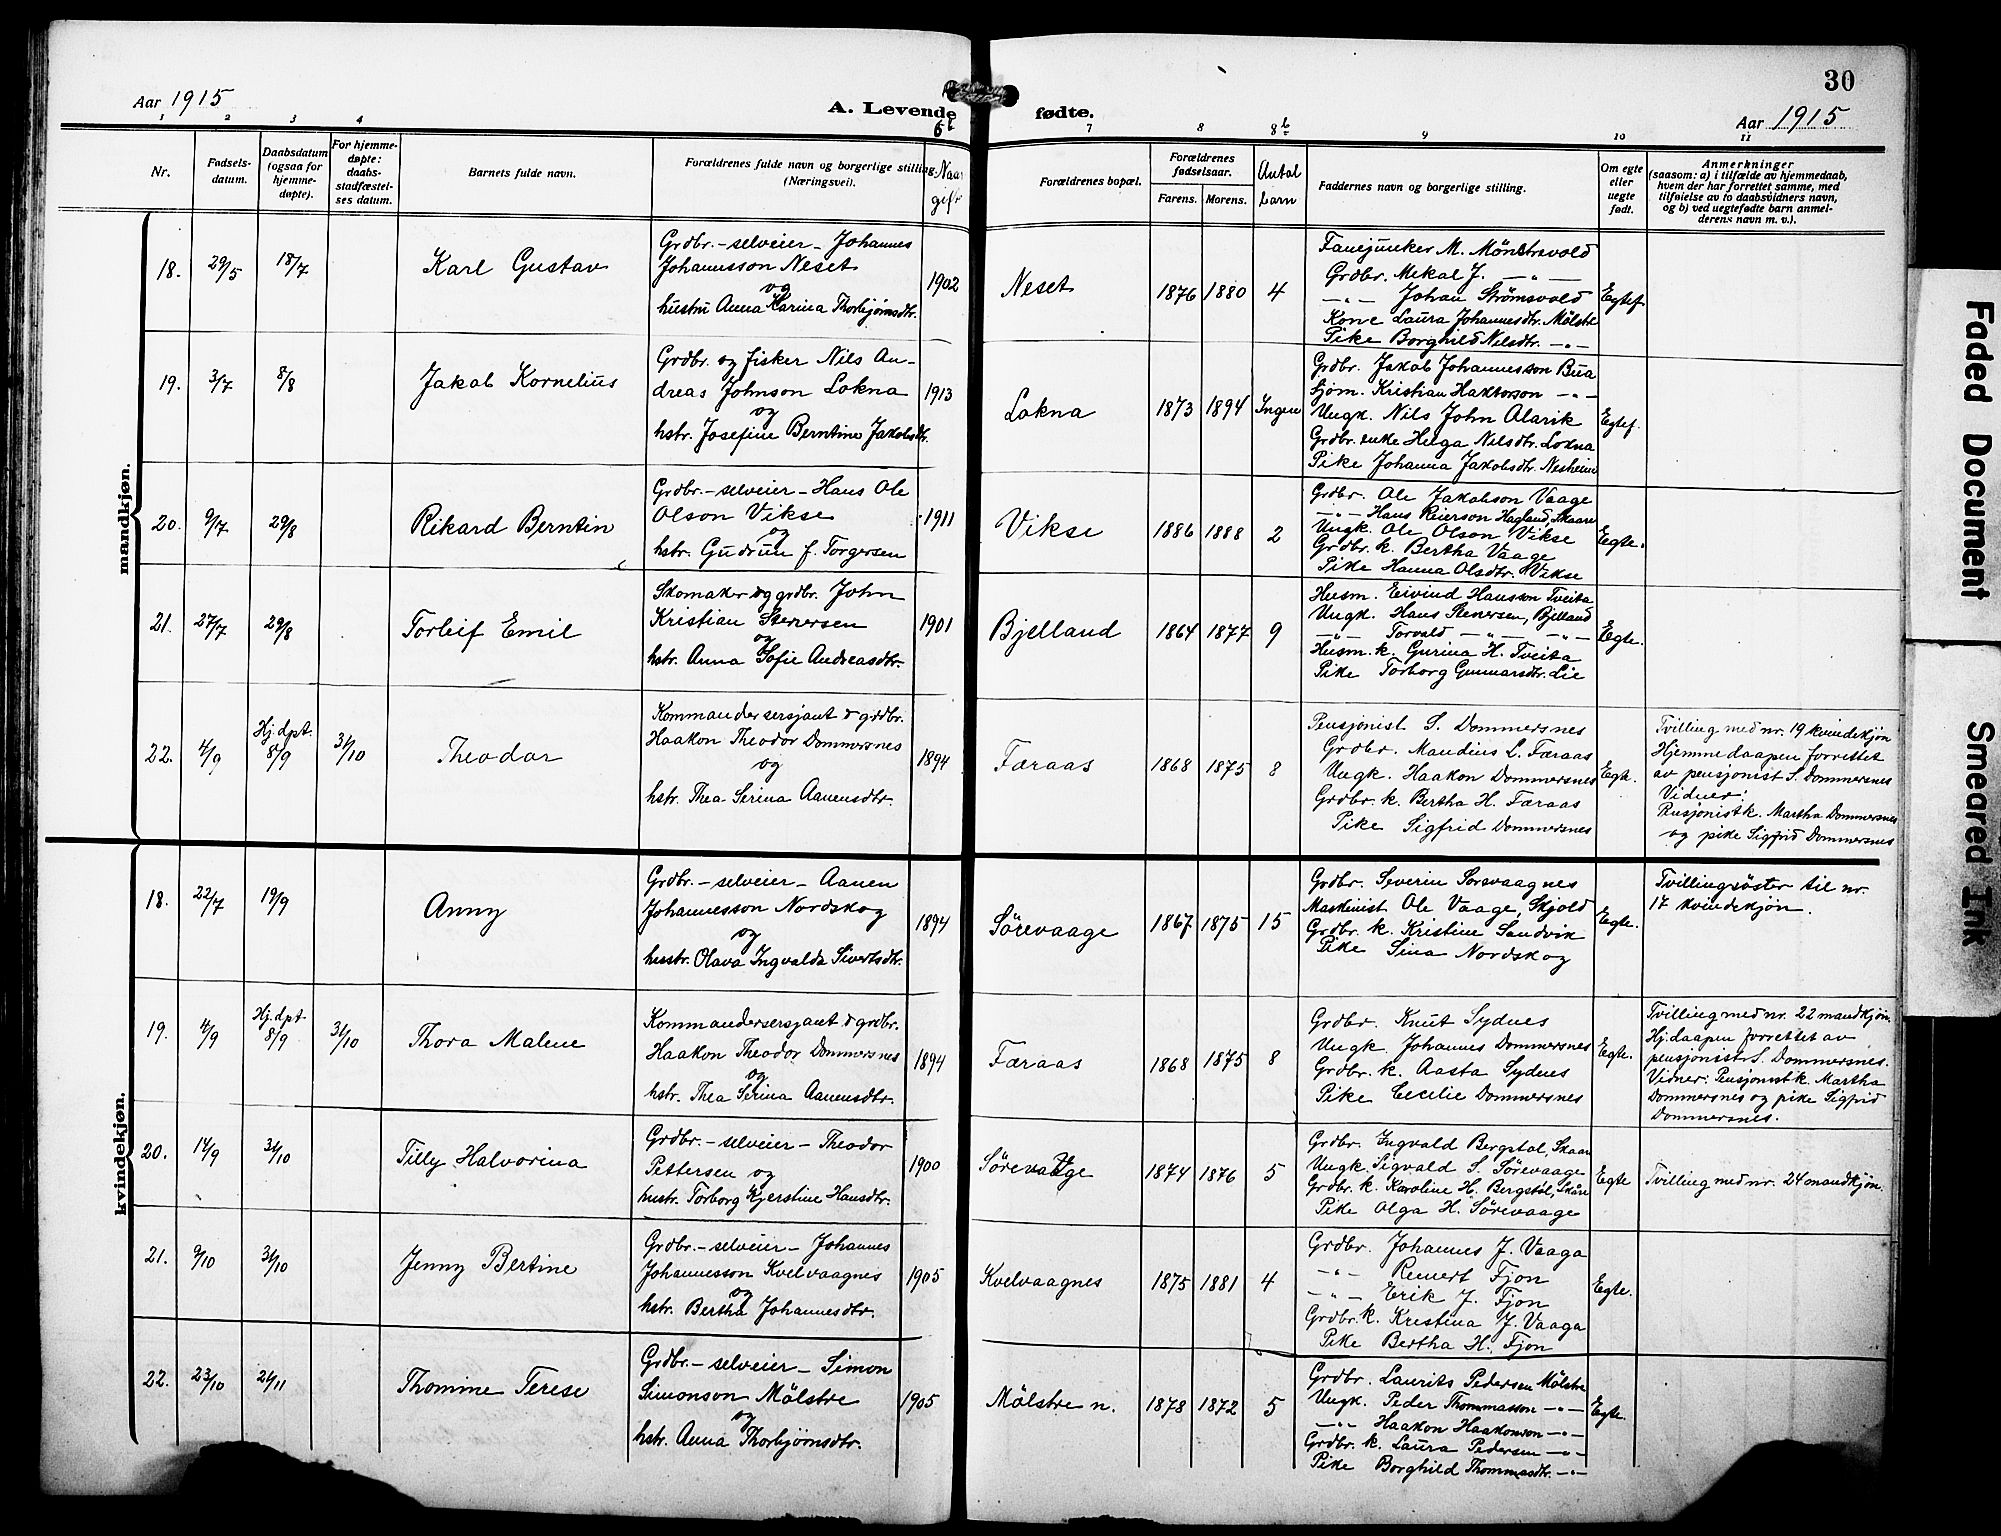 30
Aar 1915
A. Levende fødte.
Aar 1915
1 2 3 4 6b 7 8 8b 9 10 11
Nr.
Fødsels-
datum.
Daabsdatum
(ogsaa for
hjemme-
døpte).
For hjemme-
døpte:
daabs-
stadfæstel-
ses datum.
Barnets fulde navn.
Forældrenes fulde navn og borgerlige stilling.
(Næringsvei).
Naar
gift
Forældrenes bopæl.
Forældrenes
fødselsaar.
Farens. Morens.
Antal
barn
Faddernes navn og borgerlige stilling.
Om egte
eller
uegte
født.
Anmerkninger
(saasom: a) i tilfælde av hjemmedaab,
hvem der har forrettet samme, med
tilføielse av to daabsvidners navn,
og b) ved uegtefødte barn anmel-
derens navn m. v.).
mandkjøn.
18. 29/5 18/7 Karl Gustav
Grdbr. - selveier - Johannes
Johannesson Neset
og
hustru Anna Karina Thorbjørnsdtr.
1902 Neset 1876 1880 4
Fanejunker M. Mönstrevold
Grdbr. Mekal J. -"-
-"- Johan Strømsvold
Kone Laura Johannesdtr. Mölstre
Pike Borghild Nilsdtr. -"-
Egtef.
19. 3/7 8/8 Jakob Kornelius
Grdbr. og fisker Nils An-
dreas Johnson Lokna
og
hstr. Josefine Berntine Jakobsdtr.
1913 Lokna 1873 1894 Ingen
Grdbr. Jakob Johannesson Bua
Kristian -"-
Ungk. Nils John Alarik
Grdbr. enke Helga Nilsdtr. Lokna
Pike Johanna Jakobsdtr. Nesheim
Egtef.
20. 9/7 29/8 Rikard Berntin
Grdbr. - selveier - Hans Ole
Olson Vikse
og
hstr. Gudrun f. Torgersen
1911 Vikse 1886 1888 2
Grdbr. Ole Jakobson Vaage
-"- Hans Reierson Hagland, Skaare
Ungk. Ole Olson Vikse
Grdbr. k. Bertha Vaage
Pike Hanna Olsdtr. Vikse
Egte.
21. 27/7 29/8 Torleif Emil
Skomaker og grdbr. John
Kristian
og
hstr. Anna Sofie Andreasdtr.
1901 Bjelland 1864 1877 9
Husm. Eivind Hansson Tveita
Ungk. Hans Bjelland
-"- Torvald -"- -"-
Husm. k. Gurina H. Tveita
Pike Torborg Gunnarsdtr. Lie
Egte.
22. 4/9 Hj.dpt. 8/9 31/10 Theodor
Kommandersersjant & grdbr.
Haakon Theodor Dommersnes
og
hstr. Thea Serina Aanensdtr.
1894 Færaas 1868 1875 8
Pensjonist S. Dommersnes
Grdbr. Mandius L. Færaas
Ungk. Haakon Dommersnes
Grdbr. k. Bertha H. Færaas
Pike Sigfrid Dommersnes
Egte.
Tvilling med nr. 19 kvindekjøn
Hjemmedaapen forrettet
av pensjonist S. Dommersnes
Vidner:
Pensjonist k. Martha Dommersnes
og pike Sigfrid Dommersnes
kvindekjøn.
18. 22/7 19/9 Anny
Grdbr. - selveier - Aanen
Johannesson Nordskog
og
hustr. Olava Ingvalda Sivertsdtr.
1894 Sörevaage 1867 1875 15
Grdbr. Severin Sørevaagnes
Maskinist Ole Vaage, Skjold
Grdbr. k. Kristine Sandvik
Pike Sina Nordskog
Egte.
Tvillingsöster til nr.
17 kvindekjön.
19. 4/9 Hj.dpt. 8/9 31/10 Thora Malene
Kommandersersjant & grdbr.
Haakon Theodor Dommersnes
og
hstr. Thea Serina Aanensdtr.
1894 Færaas 1868 1875 8
Grdbr. Knut Sydnes
Ungk Johannes Dommersnes
Grdbr. k. Aasta Sydnes
Pike Cecilie Dommersnes
Egte.
Tvilling med nr. 22 mandkjøn.
Hj.daapen forrettet av
pensjonist S. Dommersnes.
Vidner: Pensjonist k. Martha
Dommersnes og pike Sigfrid
Dommersnes.
20. 14/9 31/10 Tilly Halvorina
Grdbr. - selveier - Theodor
Pettersen og
hustr. Torborg Kjerstine Hansdtr.
1900 Sörevaage 1874 1876 5
Grdbr. Ingvald Bergstøl, Skaare
Ungk. Sigvald S. Sørevaage
Grdbr. k. Karoline H. Bergstøl, Skåre
Pike Olga H. Sörevaage
Egte
Tvilling med nr. 24 mandkjøn.
21. 9/10 31/10 Jenny Bertine
Grdbr. - selveier - Johannes
Johannesson Kvelvaagnes
og
hstr. Bertha Johannesdtr.
1905 Kvelvaagnes 1875 1881 4
Grdbr. Johannes J. Vaaga
-"- Reinert Fjon
-"- Erik J. Fjon
Grdbr. k. Kristina J. Vaaga
Pike Bertha H. Fjon
Egte.
22. 23/10 21/11 Thomine Terese
Grdbr. - selveier - Simon
Simonson Mölstre
og
hstr. Anna Thorbjørnsdtr.
1905 Mölstre n. 1878 1872 5
Grdbr. Laurits Pedersen Mölstre
Ungk. Peder Thommasson -"-
-"- Haakon Haakonson -"-
Grdbr. k. Laura Pedersen -"-
Pike Borghild Thommasdtr. -"-
Egte.
Faded Document
Smeared Ink